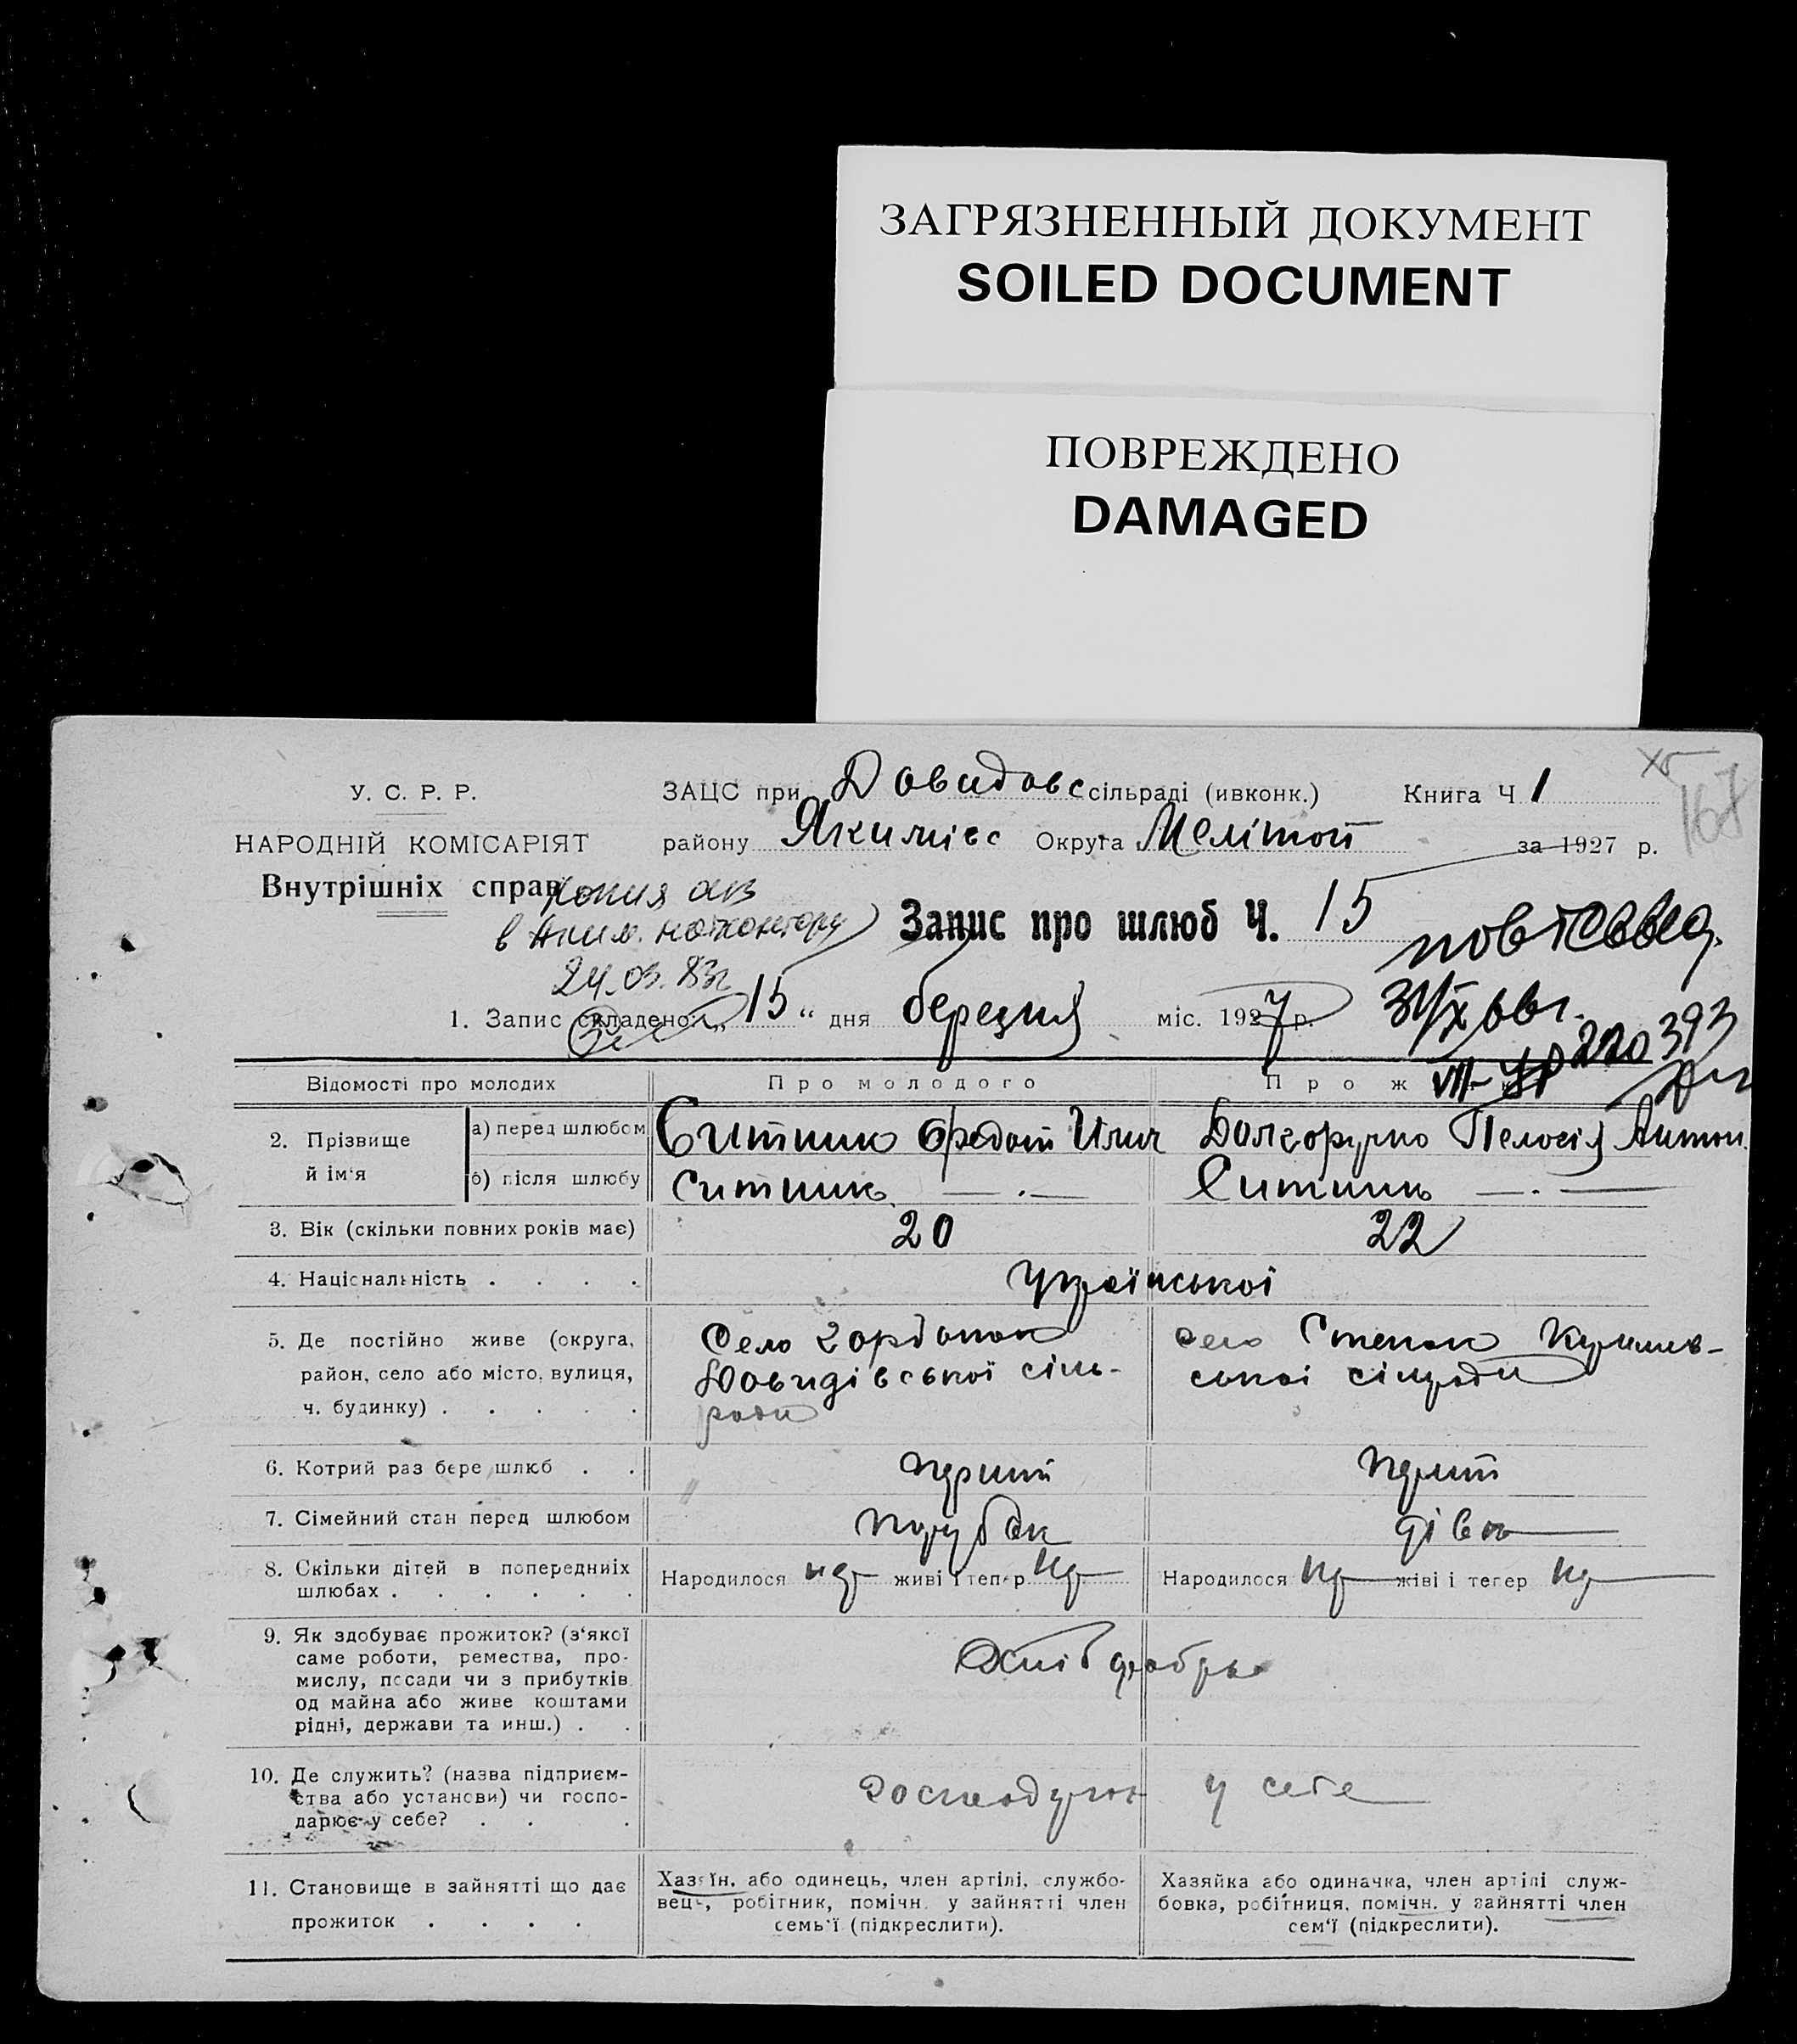 ЗАГРЯЗНЕННЫЙ ДОКУМЕНТ
SOILED DOCUMENT
ПОВРЕЖДЕНО
DAMAGED
У. С. Р. Р.
НАРОДНІЙ КОМІСАРІЯТ
Внутрішніх справ
ЗАЦС при Довидовс сільраді (ивконк.) Книга Ч 1
167
району Якиміівс Округа Меліт за 1927 р.
копия
в Аким. нотконтору
24.03.83г
Запис про шлюб Ч. 15
1. Запис складено „15“ дня березня міс. 1927 р.
220393
Відомості про молодих
Про молодого
Про ж
2. Прізвище й ім'я
а) перед шлюбом Ситник Федот Илич Долгоручко Пелогія Антон.
б) після шлюбу Ситник Ситник
3. Вік (скільки повних років має) 20 22
4. Національність . . . . Української
5. Де постійно живе (округа,
район, село або місто, вулиця,
ч. будинку) . . . . .
Село
Довидівської сіль-
ради
село Степок
ської сілради
6. Котрий раз бере шлюб . . перший перший
7. Сімейний стан перед шлюбом парубок дівка
8. Скільки дітей в попередніх
шлюбах . . . . . .
Народилося нд живі і тепер нд
Народилося нд жіві і тепер нд
9. Як здобуває прожиток? (з'якої
саме роботи, ремества, про-
мислу, посади чи з прибутків
од майна або живе коштами
рідні, держави та инш.) . .
Хліборобів
10. Де служить? (назва підприєм-
ства або установи) чи госпо-
дарює у себе? . . .
у себе
11. Становище в зайнятті що дає
прожиток . . . .
Хазяїн, або одинець, член артілі, службо-
вець, робітник, помічн. у зайнятті член
семь'ї (підкреслити).
Хазяйка або одиначка, член артілі служ-
бовка, робітниця, помічн. у зайнятті член
сем'ї (підкреслити).